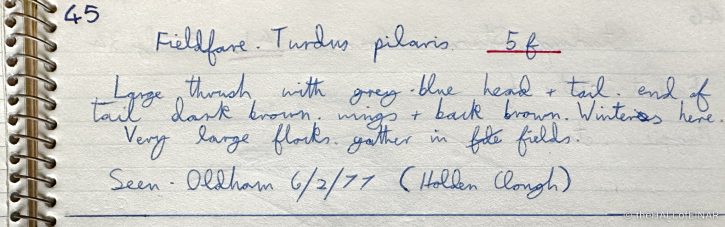 45
Fieldfare. Turdus pilaris. 5 f
Large thrush with grey-blue head + tail. end of
tail dark brown. wings + back brown. Winters here.
Very large flocks. gather in fields.
Seen - Oldham 6/2/77 (Holden Clough)